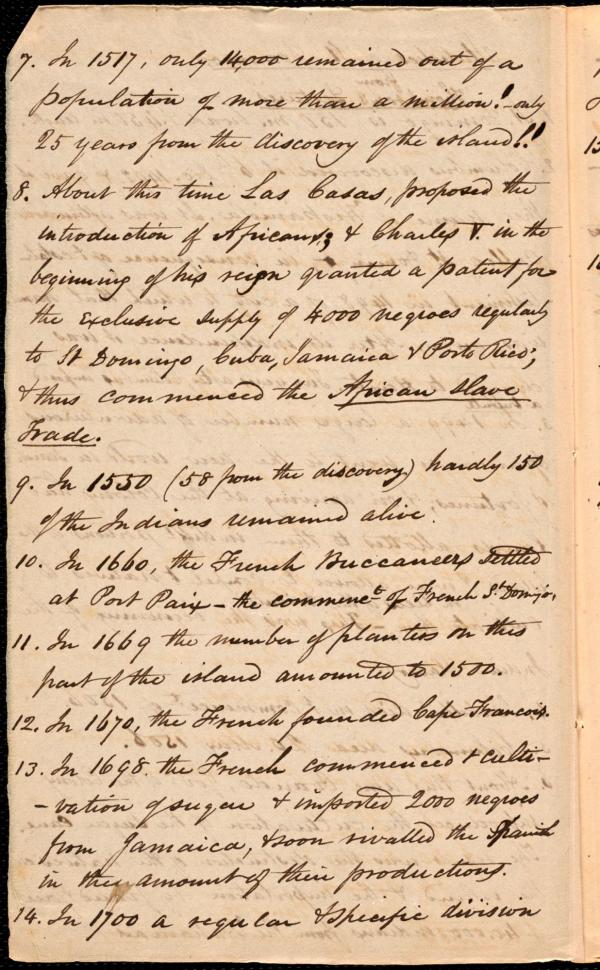 7. In 1517, only 14,000 remained out of a
population of more than a million! - only
25 years from the discovery of the island!!
8. About this time Las Casas, proposed the
introduction of Africans; & Charles V. in the
beginning of his reign granted a patent for
the exclusive supply of 4000 negroes regularly
to St Domingo, Cuba, Jamaica & Porto Rico;
& thus commenced the African slave
Trade.
9. In 1550 (58 from the discovery) hardly 150
of the Indians remained alive.
10. In 1660, the French Buccaneers settled
at Port Paix - the commenct of French St Domigo.
11. In 1669 the number of planters on this
part of the island amounted to 1500.
12. In 1670, the French founded Cape Francois.
13. In 1698. the French commenced & culti-
-vation of sugar & imported 2000 negroes
from Jamaica, & soon rivalled the Spanish
in the amount of their productions.
14. In 1700 a regular & specific division